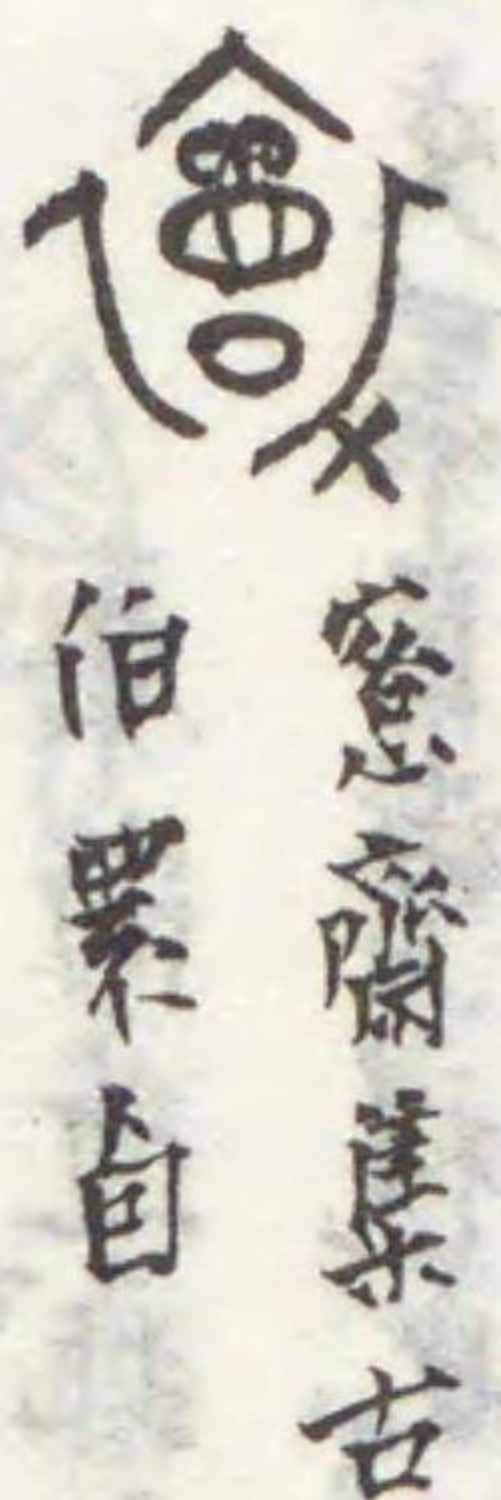 愙齋集古
伯睘卣